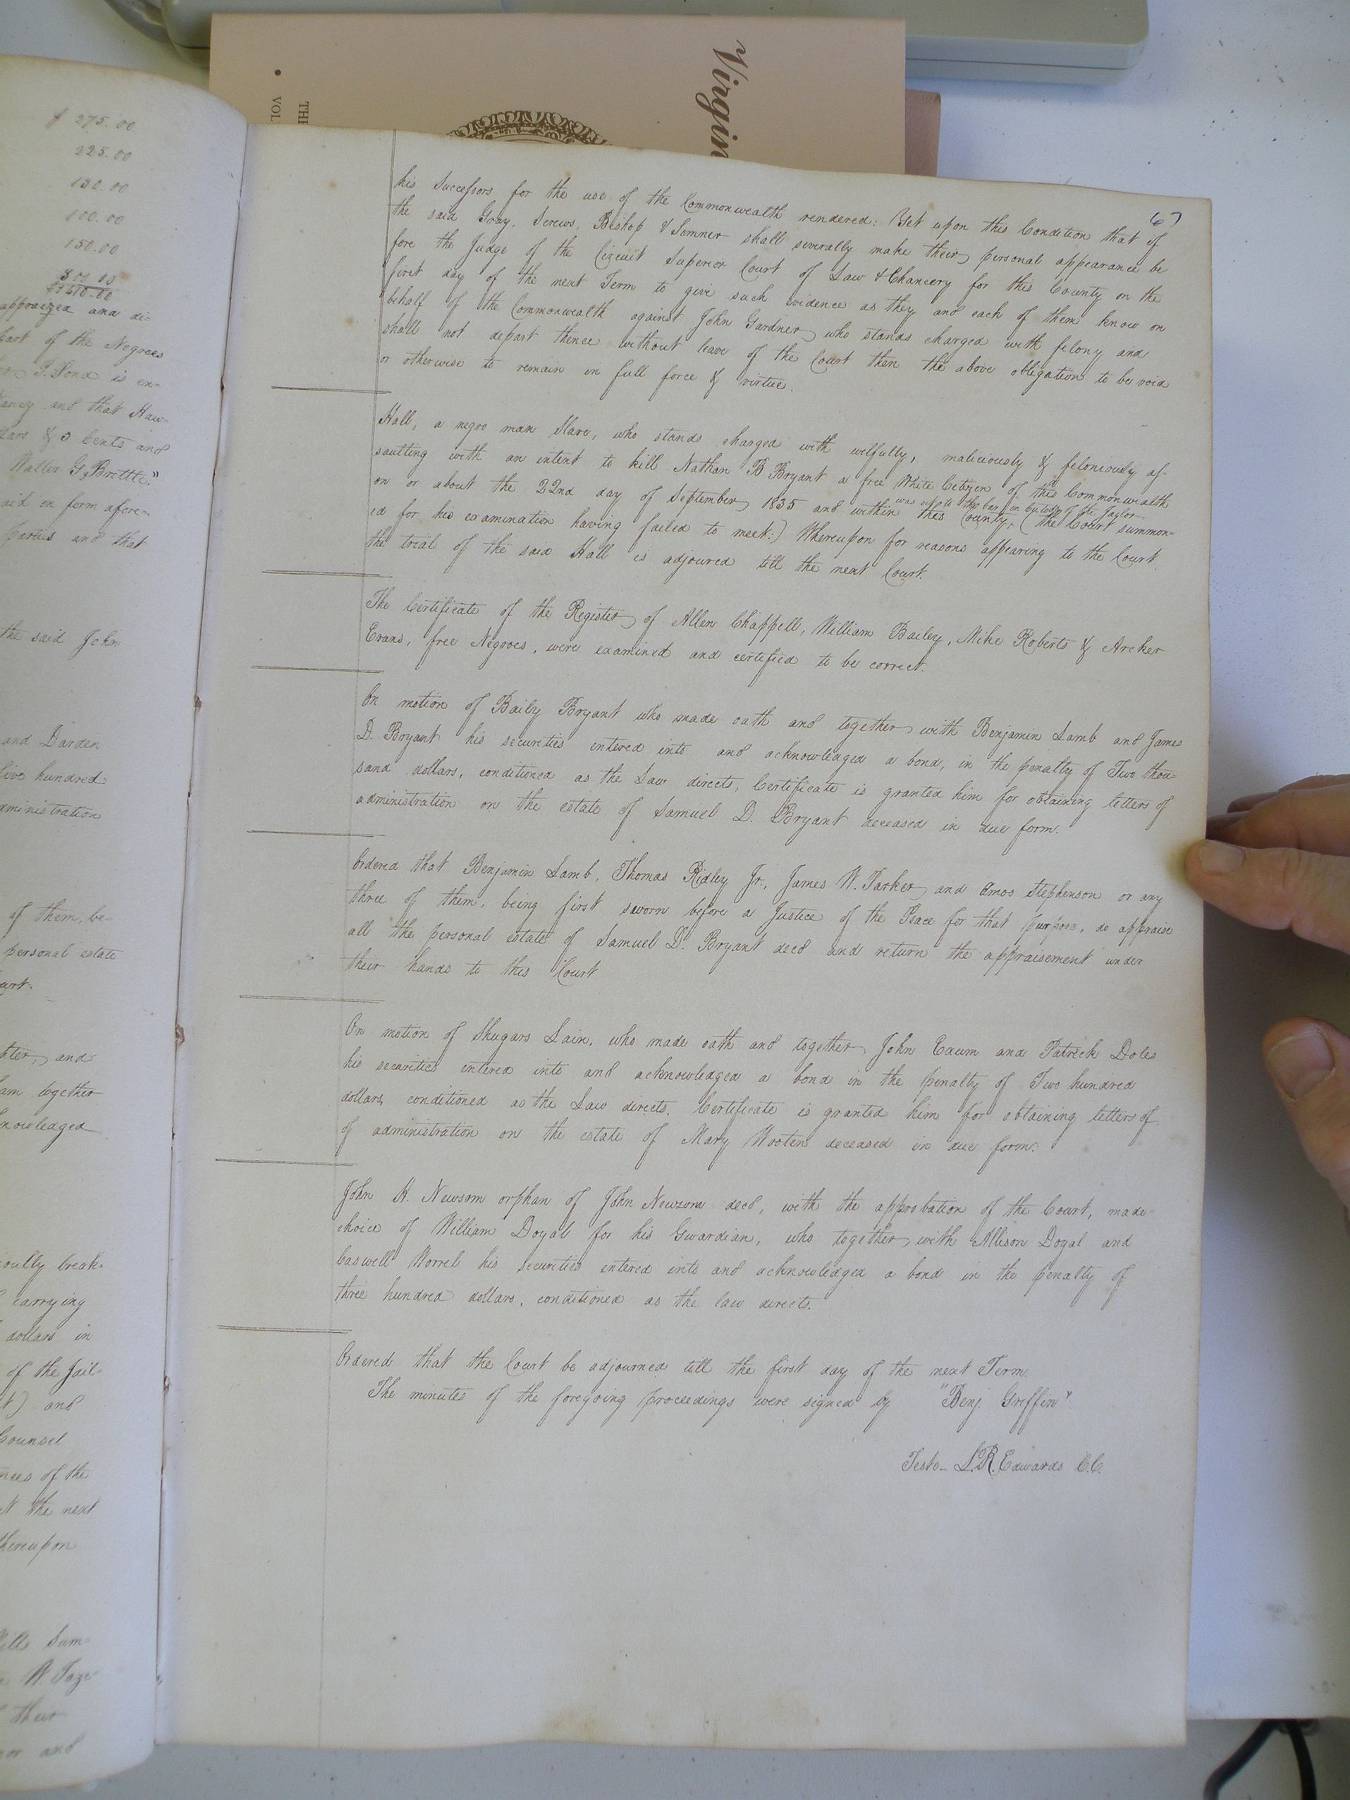 Virgin
TH
VOL
$ 275.00
225.00
130.00
100.00
150.00
appraized and di-
part of the Negroes
is en-
and that Haw-
& 3 Cents and
Walter G. Brittle"
aid in form afore-
parties and that
the said John
and Darden
five hundred
ministration
of them, be-
personal estate
and
am together
knowledged
break-
carrying
dollars in
of the Jail-
and
Counsel
of the
the next
thereupon
Sam-
their
and
67
his Successors for the use of the Commonwealth rendered: Yet upon this Condition that if
the said Gray, Screws, Bishop & Sumner shall severally make their personal appearance be
fore the Judge of the Circuit Superior Court of Law & Chancery for this County on the
first day of the next Term to give such evidence as they and each of them know on
behalf of the Commonwealth against John Gardner who stands charged with felony and
shall not depart thence without leave of the Court then the above obligation to be void
or otherwise to remain in full force & virtue.
Hall, a negro man Slave, who stands charged with wilfully, maliciously & feloniously as-
saulting with an intent to kill Nathan B Bryant a free White Citizen of this Commonwealth
on or about the 22nd day of September 1835 and within this County, (the Court summon-
was set to the bar in custody of the Jaylor
ed for his examination having failed to meet:) Whereupon for reasons appearing to the Court
the trial of the said Hall is adjoured till the next Court.
The Certificate of the Register of Allen Chappell, William Bailey, Mike Roberts & Archer
Evans, free Negroes, were examined and certified to be correct.
On motion of Baily Bryant who made oath and together with Benjamin Lamb and James
D. Bryant his securities entered into and acknowledged a bond, in the penalty of Two thou-
sand dollars, conditioned as the Law directs, Certificate is granted him for obtaining letters of
administration on the estate of Samuel D. Bryant deceased in due form.
Ordered that Benjamin Lamb, Thomas Ridley Jr., James W. Parker and Amos Stephenson or any
three of them, being first sworn before a Justice of the Peace for that purpose, do appraise
all the personal estate of Samuel D. Bryant decd and return the appraisement under
their hands to this Court
On motion of Shugars Lain, who made oath and together John Exum and Patrick Doles
his securities entered into and acknowledged a bond in the penalty of Two hundred
dollars, conditioned as the Law directs, Certificate is granted him for obtaining letters of
of administration on the estate of Mary Wooten deceased in due form.
John H. Newsom orphan of John Newsom decd, with the approbation of the Court, made
choice of William Doyal for his Gwardian, who together with Allison Doyal and
Caswell Worrel his Securities entered into and acknowledged a bond in the penalty of
three hundred dollars, conditioned as the law directs.
Ordered that the Court be adjourned till the first day of the next Term
The minutes of the foregoing proceedings were signed by "Benj Griffin"
Teste- L.R. Edwards C.C.